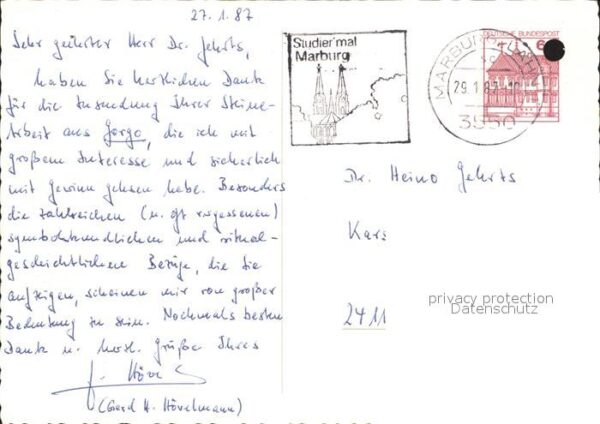 27.1.87
Sehr geehrter Herr Dr. Gehrts,
haben Sie herzlichen Dank
für die Zusendung Ihrer Steine-
Arbeit aus Gorgo, die ich mit
großem Interesse und sicherlich
mit Gewinn gelesen habe. Besonders
die zahlreichen (u. oft vergessenen)
symbolkundlichen und ritual-
geschichtlichen Bezüge, die Sie
aufzeigen, scheinen mir von großer
Bedeutung zu sein. Nochmals besten
Dank u. herzl. Grüße Ihres
(Gerd H. Hövelmann)
Studier'mal
Marburg
DEUTSCHE BUNDESPOST
6
MARBURG
29.1.87
3550
Dr. Heino Gehrts
2411
privacy protection
Datenschutz